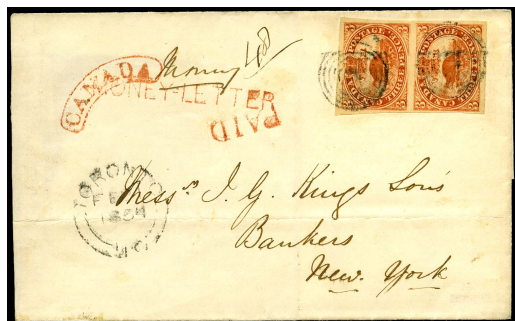 CANADA
Money
MONEY-LETTER
PAID
CANADA POSTAGE THREE PENCE
CANADA POSTAGE THREE PENCE
TORONTO
FE
1854
Messrs. J. G. Kings Sons
Bankers
New. York